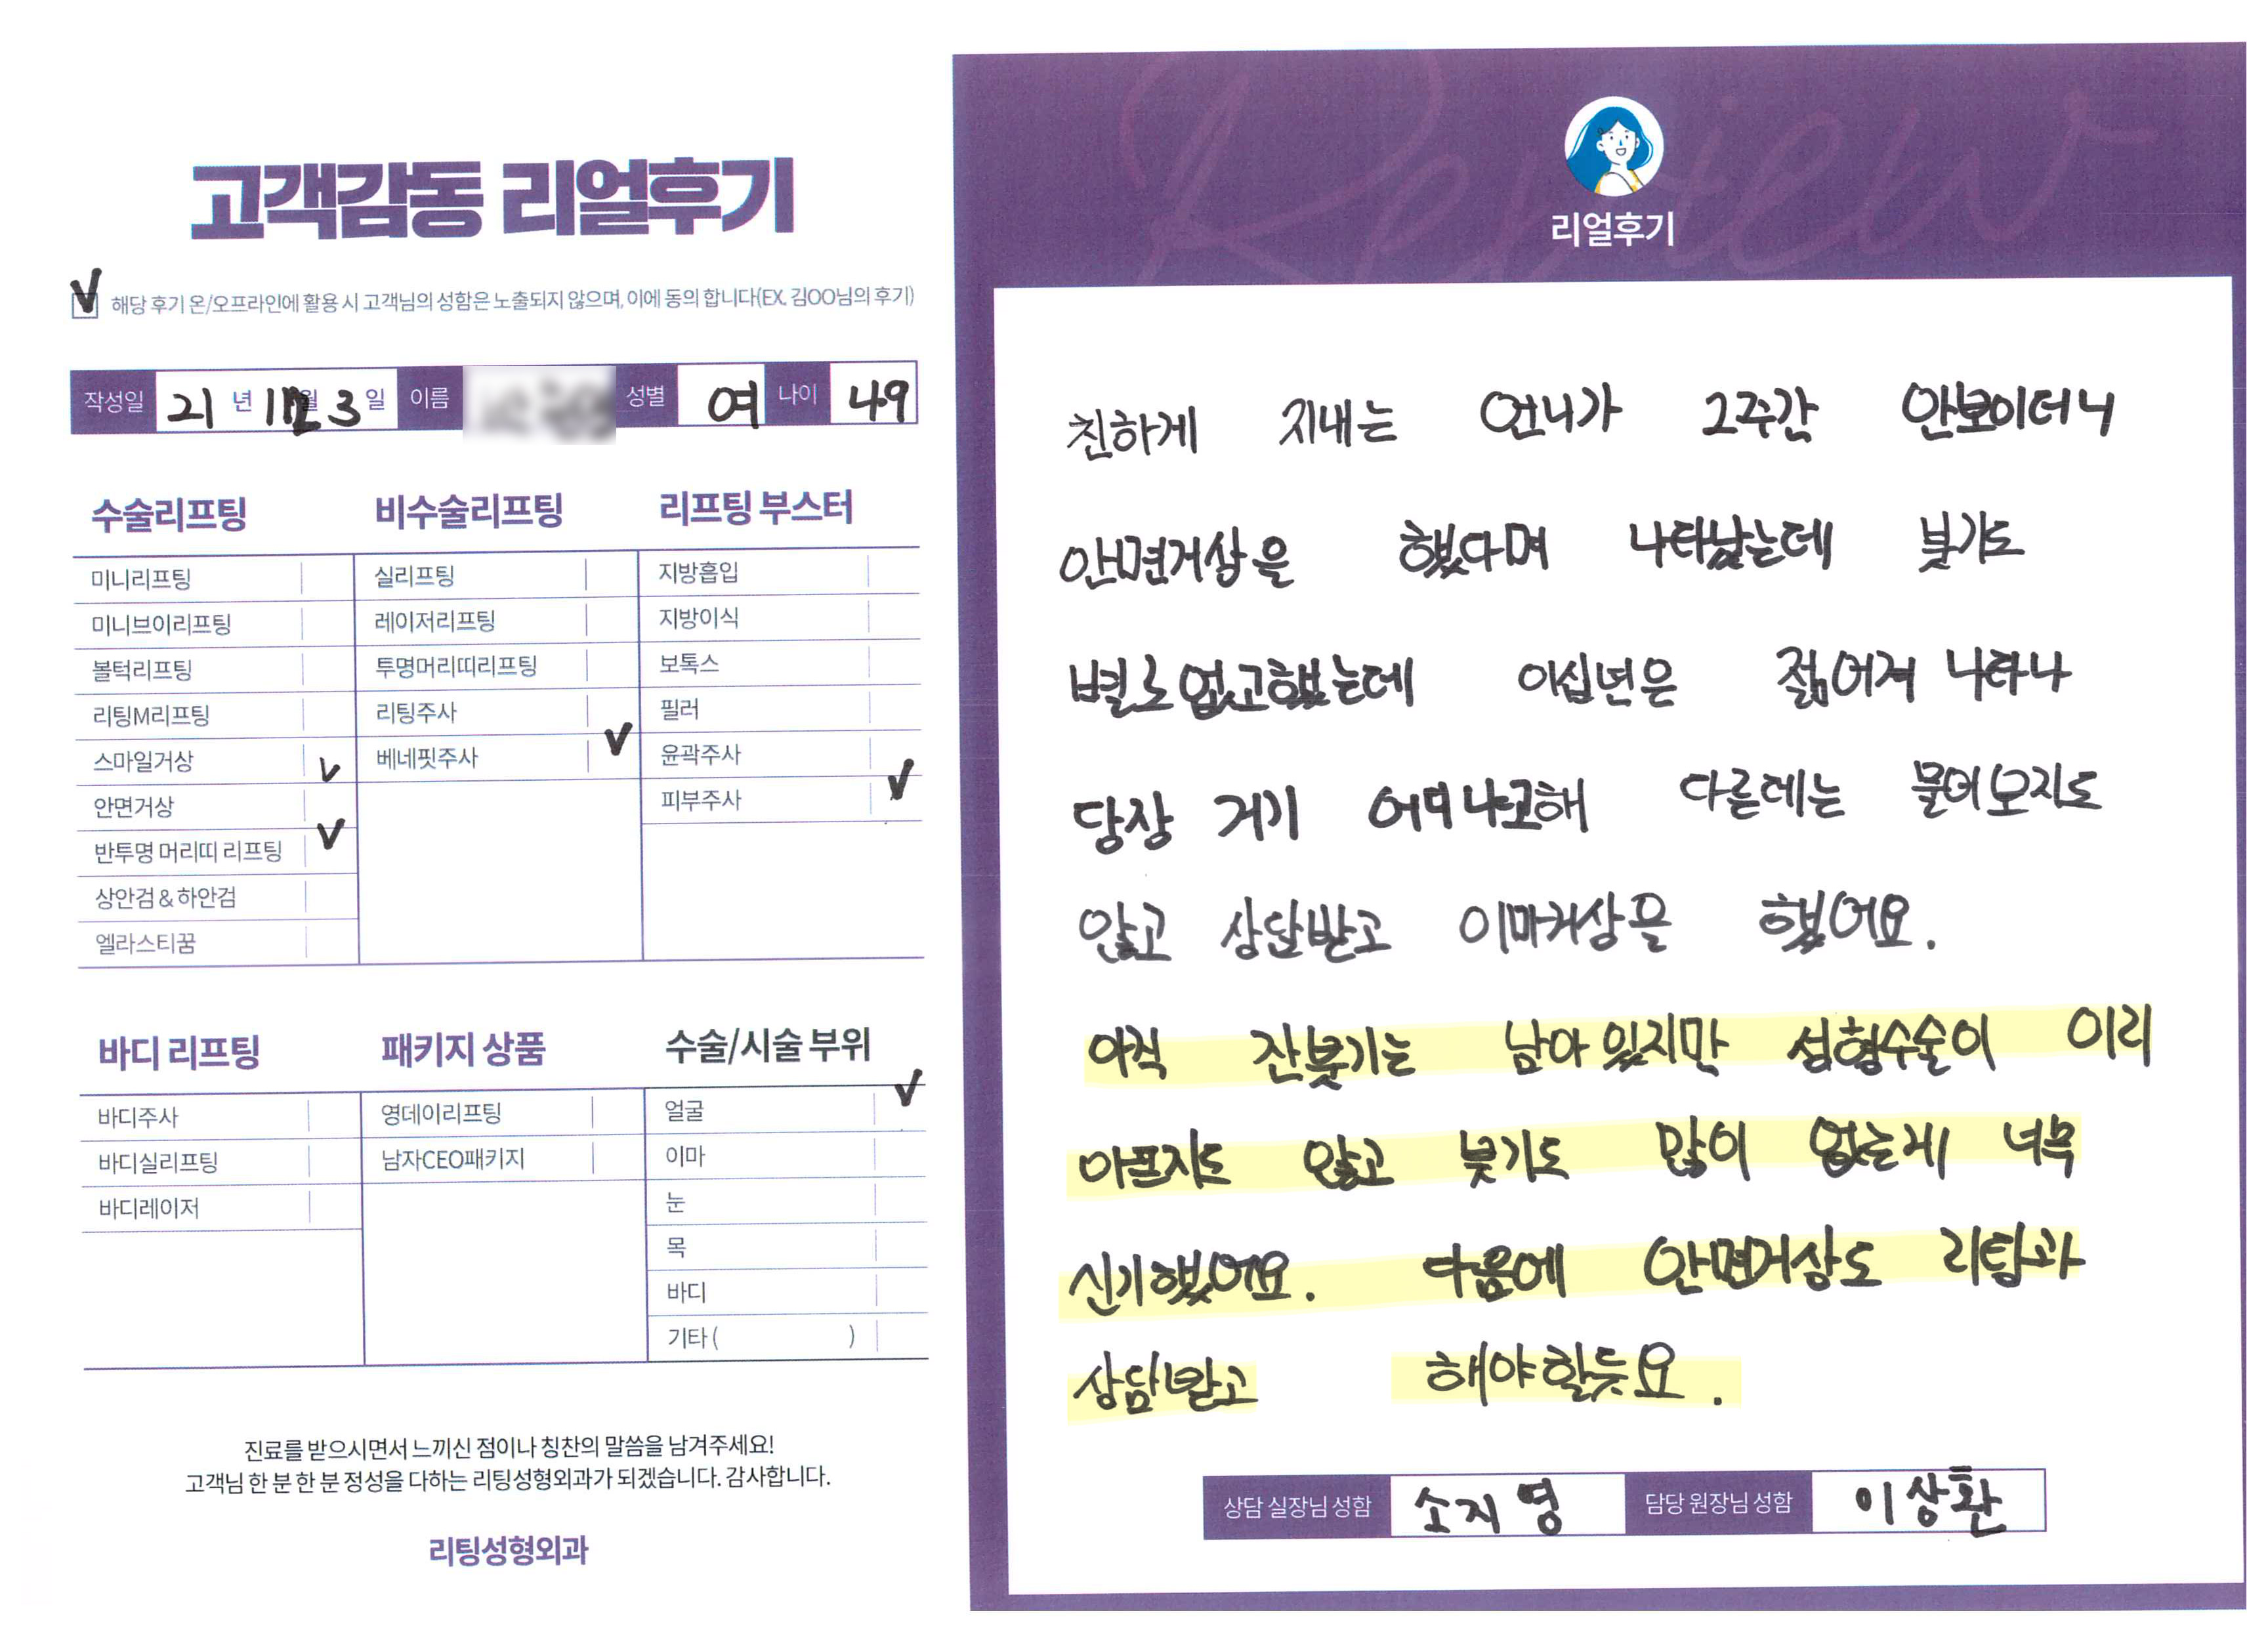 고객감동 리얼후기
해당 후기 온/오프라인에 활용 시 고객님의 성함은 노출되지 않으며, 이에 동의 합니다(EX. 김OO님의 후기)
작성일 21 년 월 3 일 이름 성별 여 나이 49
수술리프팅 비수술리프팅 리프팅 부스터
미니리프팅 실리프팅 지방흡입
미니브이리프팅 레이저리프팅 지방이식
볼턱리프팅 투명머리띠리프팅 보톡스
리팅M리프팅 리팅주사 필러
스마일거상 베네핏주사 윤곽주사
안면거상 피부주사
반투명 머리띠 리프팅
상안검 & 하안검
엘라스티꿈
바디 리프팅 패키지 상품 수술/시술 부위
바디주사 영데이리프팅 얼굴
바디실리프팅 남자CEO패키지 이마
바디레이저 눈
목
바디
기타 ( )
진료를 받으시면서 느끼신 점이나 칭찬의 말씀을 남겨주세요!
고객님 한 분 한 분 정성을 다하는 리팅성형외과가 되겠습니다. 감사합니다.
리팅성형외과
Review
리얼후기
친하게 지내는 언니가 2주간 안보이더니
안면거상을 했다며 나타났는데 붓기도
별로 없고했는데 이십년은 젊어져 나타나
당장 거기 어디냐고해 다른데는 물어보지도
않고 상담받고 이마거상을 했어요.
아직 잔붓기는 남아있지만 성형수술이 이리
아프지도 않고 붓기도 많이 없는게 너무
신기했어요. 다음에 안면거상도 리팅과
상담받고 해야할듯요.
상담 실장님 성함 소지영 담당 원장님 성함 이상환